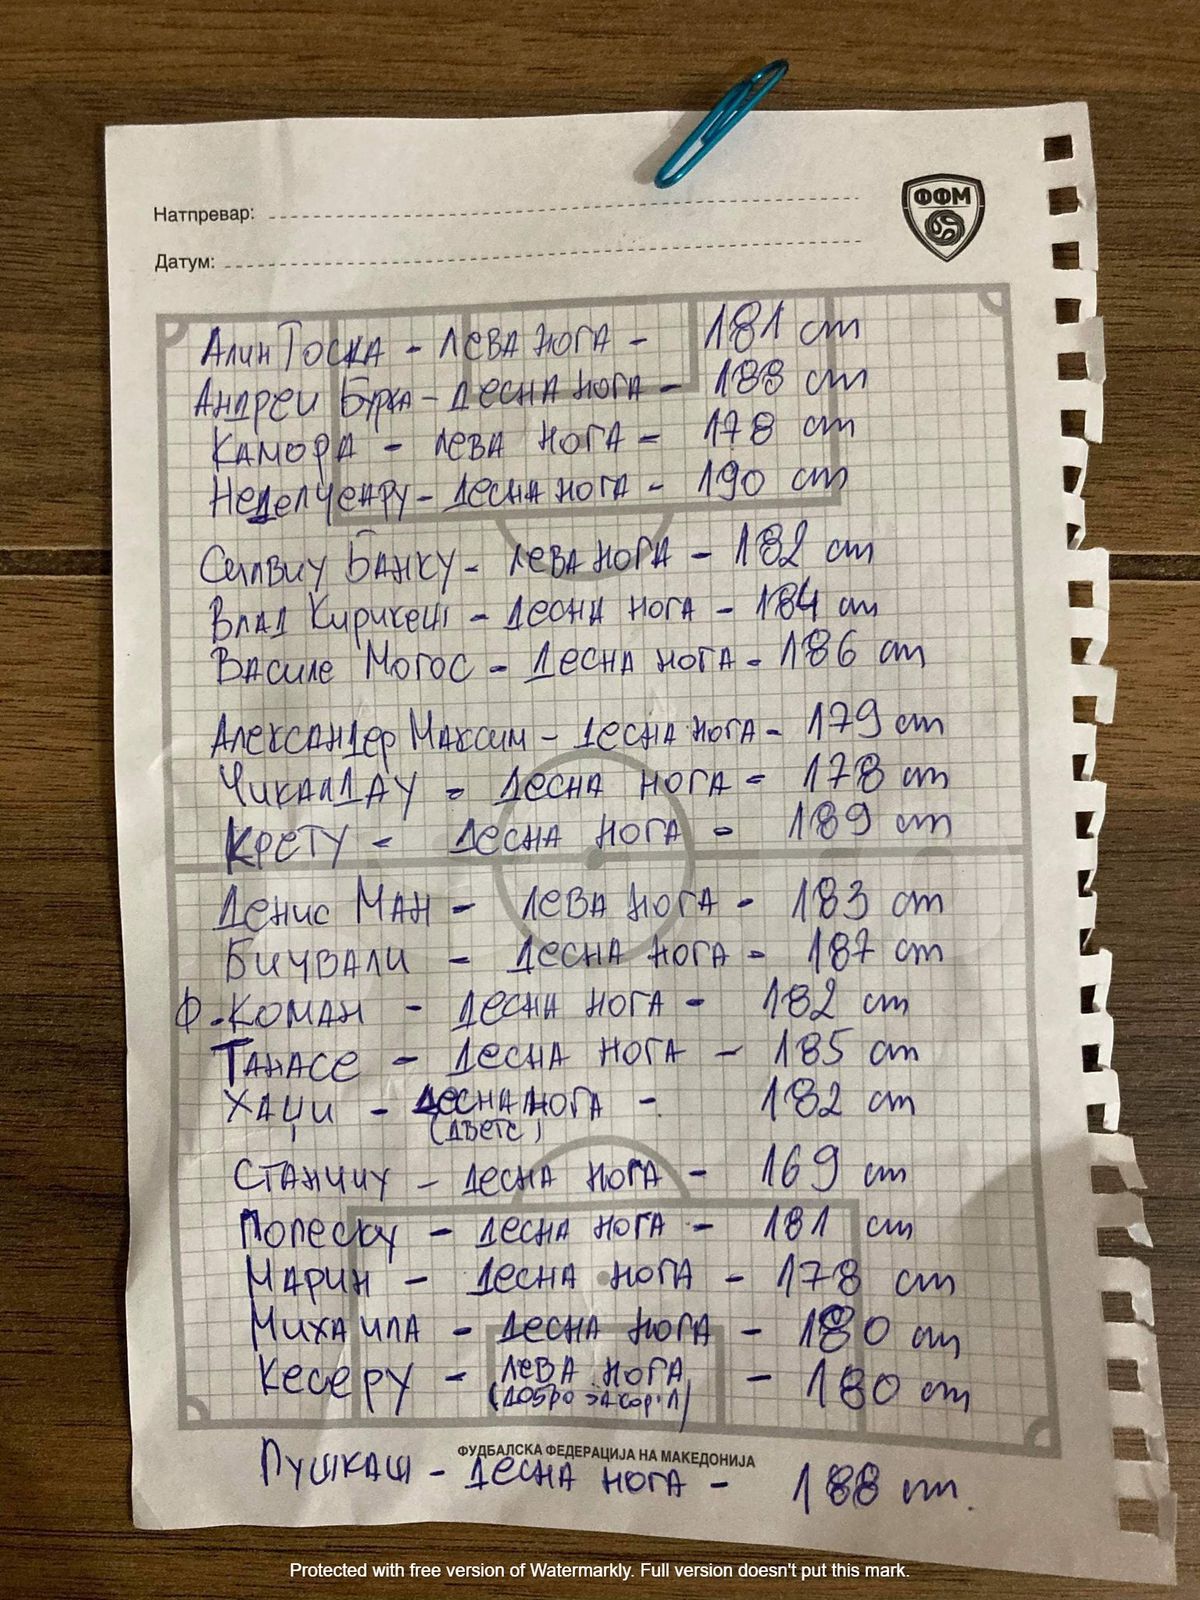 Натпревар:
ФФМ
Датум:
Алин Тоска - лева нога - 181 cm
Андреи Бурка - десна нога - 188 cm
Камора - лева нога - 178 cm
Неделчеару - десна нога - 190 cm
Силвиу Банку - лева нога - 182 cm
Влад Кирикеш - десна нога - 184 cm
Василе Могос - десна нога - 186 cm
Александер Максим - десна нога - 179 cm
Чикалдау - десна нога - 178 cm
Крету - десна нога - 189 cm
Денис Ман - лева нога - 183 cm
Бичвали - десна нога - 187 cm
Ф. Коман - десна нога - 182 cm
Танасе - десна нога - 185 cm
Хаџи - десна нога - 182 cm
(двете)
Станчиу - десна нога - 169 cm
Попеску - десна нога - 181 cm
Марин - десна нога - 178 cm
Михаила - десна нога - 180 cm
Кесеру - лева нога - 180 cm
(добро за
ФУДБАЛСКА ФЕДЕРАЦИЈА НА МАКЕДОНИЈА
Пушкаш - десна нога - 188 cm.
Protected with free version of Watermarkly. Full version doesn't put this mark.